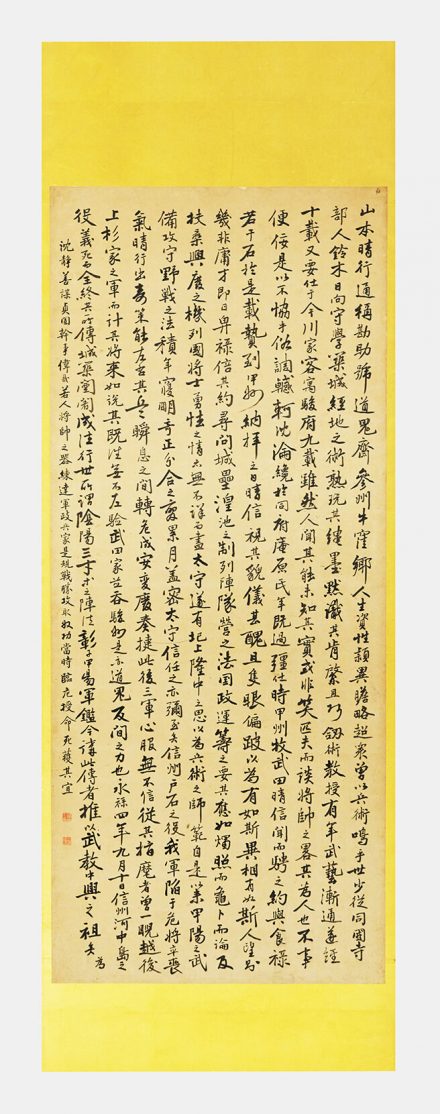 山本晴行通稱勘助號道鬼齋參州牛窪鄉人生資性穎異膽略超衆曾以兵術鳴于世少從同國寺
部人鈴木日向守學築城經地之術熟玩其繩墨默識其肯綮且巧劔術教授有年武藝漸通遊諸
十載又要仕于今川家客寓駿府九載雖然人聞其能未知其實或非笑匹夫而談將帥之畧其為人也不事
便佞是以不協于俗調轗軻沈淪纔於同府庵原氏年既過彊仕時甲州牧武田晴信聞而聘之約與食祿
若干石於是載贄到甲州納拜之日晴信視其貌儀甚醜且隻眼偏跛以為有如斯異相有如斯人望
幾非庸才即日畀祿倍其約尋問城壘湟池之制列陣隊營之法國政運籌之要其應如燭照而龜卜而論及
扶桑興廢之機列國將士勇怯之情亦無不詳而盡太守遂有圯上隆中之思以為兵術之師範自是策甲陽之武
備攻守野戰之法積年寢明奇正分合之變累月益密太守信任之亦彌至矣信州戸石之役我軍陷于危將卒喪
氣晴行出奇策能左右其兵瞬息之間轉危成安変廢奏捷此後三軍心服無不信從其指麾者曾一睨越後
上杉家之軍而計其將來如説其既徃無不左驗武田家苙吞駿州是亦道鬼反間之力也永祿四年九月十日信州河中島之
役義死而全終其所傳城築圍蜀成法行世所謂陰陽三寸求之陣法彰于甲陽軍鑑今講此傳者推以武教中興之祖矣為
沈静善謀貞固幹事偉哉若人將帥之器練達軍政兵家是規戰勝攻取收功當時臨危授命死獲其宜